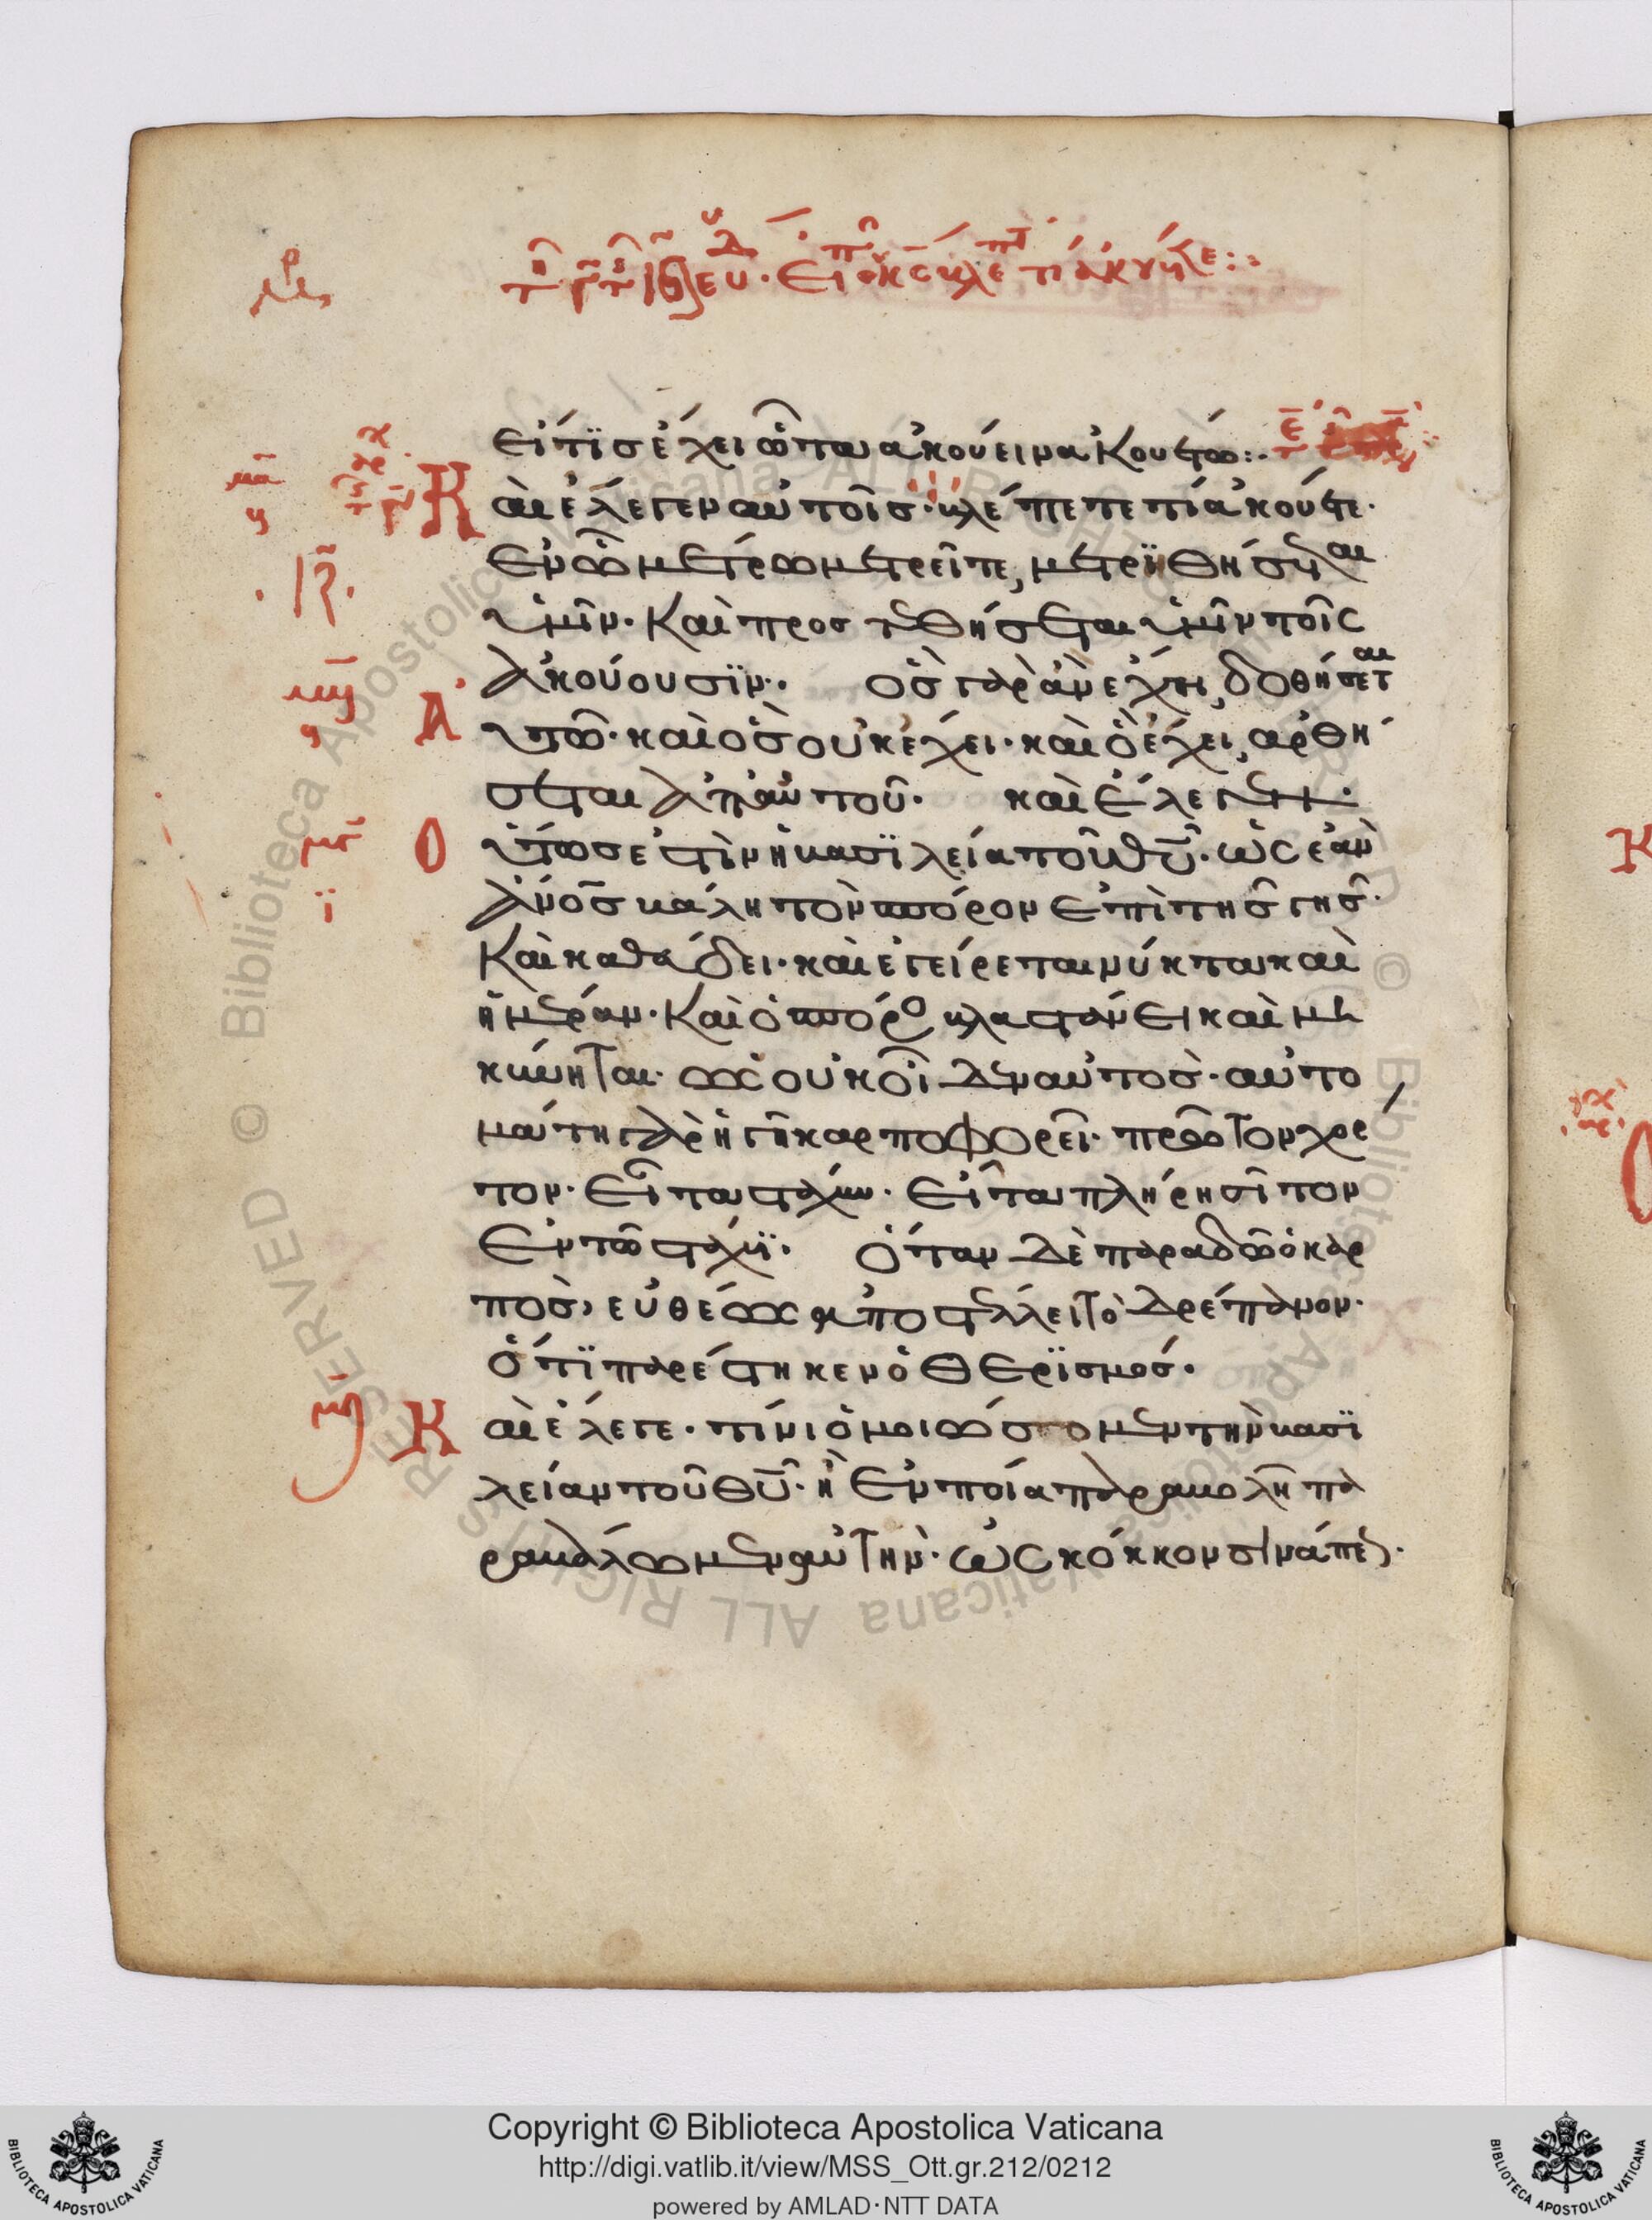 εἴ τϊσ ἔχει ὦτα ἀκούειν ἀκουέτω:·
Κ
αὶ ἔλεγεν αὐτοῖσ· βλέπετε τί ἀκούετε·
ἐν ᾧ μέτρω μετρεῖτε, μετρϊθήσεται
ὑμῖν· καὶ προστεθήσεται ὑμῖν τοῖς
ἀκούουσϊν·· ὃσ γὰρ ἂν ἔχει, δοθήσεται
Α
ὐτῶ· καὶ ὃσ οὐκ ἔχει· καὶ ὃ ἔχει, ἀρθή
σεται ἀπ' αὐτοῦ· καὶ ἔλεγεν·
Ο
ὕτωσ ἐστὶν ἡ βασϊλεία τοῦ θῦ· ὡς ἐὰν
ἄνοσ βάλη τὸν σπόρον ἐπὶ τῆσ γῆσ·
Καὶ καθεύδει· καὶ ἐγείρεται νύκτα καὶ
ἡμέραν· Καὶ ὁ σπόρο βλαστάνει καὶ μη
κύνηται· ὡς οὐκ οἶδεν αὐτὸσ· αὐτο
μάτη γὰρ ἡ γῆ καρποφορεῖ· πρῶτον χόρ
τον· εἶτα στάχυν· εἶτα πλήρη σῖτον
ἐν τῶ στάχϋϊ· Ὅταν δὲ παραδῶ ὁ καρ
πὸσ, εὐθέως ἀποστέλλει τὸ δρέπανον·
ὅτϊ παρέστηκεν ὁ θερϊσμόσ·
Κ
αὶ ἔλεγε· τίνι ὁμοιώσομεν τὴν βασϊ
λείαν τοῦ θῦ· ἢ ἐν ποία παραβολῆ πα
ραβάλωμεν αὐτήν· ὡς κόκκον σινάπεως·
Copyright © Biblioteca Apostolica Vaticana
http://digi.vatlib.it/view/MSS_Ott.gr.212/0212
powered by AMLAD·NTT DATA